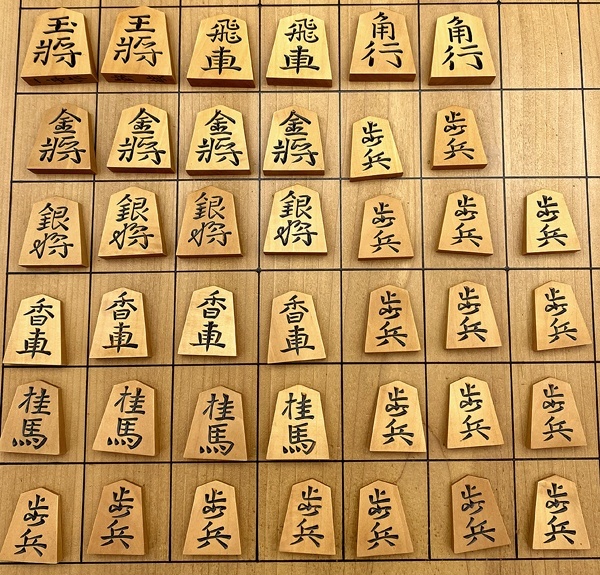 玉将 王将 飛車 飛車 角行 角行
金将 金将 金将 金将 歩兵 歩兵
銀将 銀将 銀将 銀将 歩兵 歩兵 歩兵
香車 香車 香車 香車 歩兵 歩兵 歩兵
桂馬 桂馬 桂馬 桂馬 歩兵 歩兵 歩兵
歩兵 歩兵 歩兵 歩兵 歩兵 歩兵 歩兵